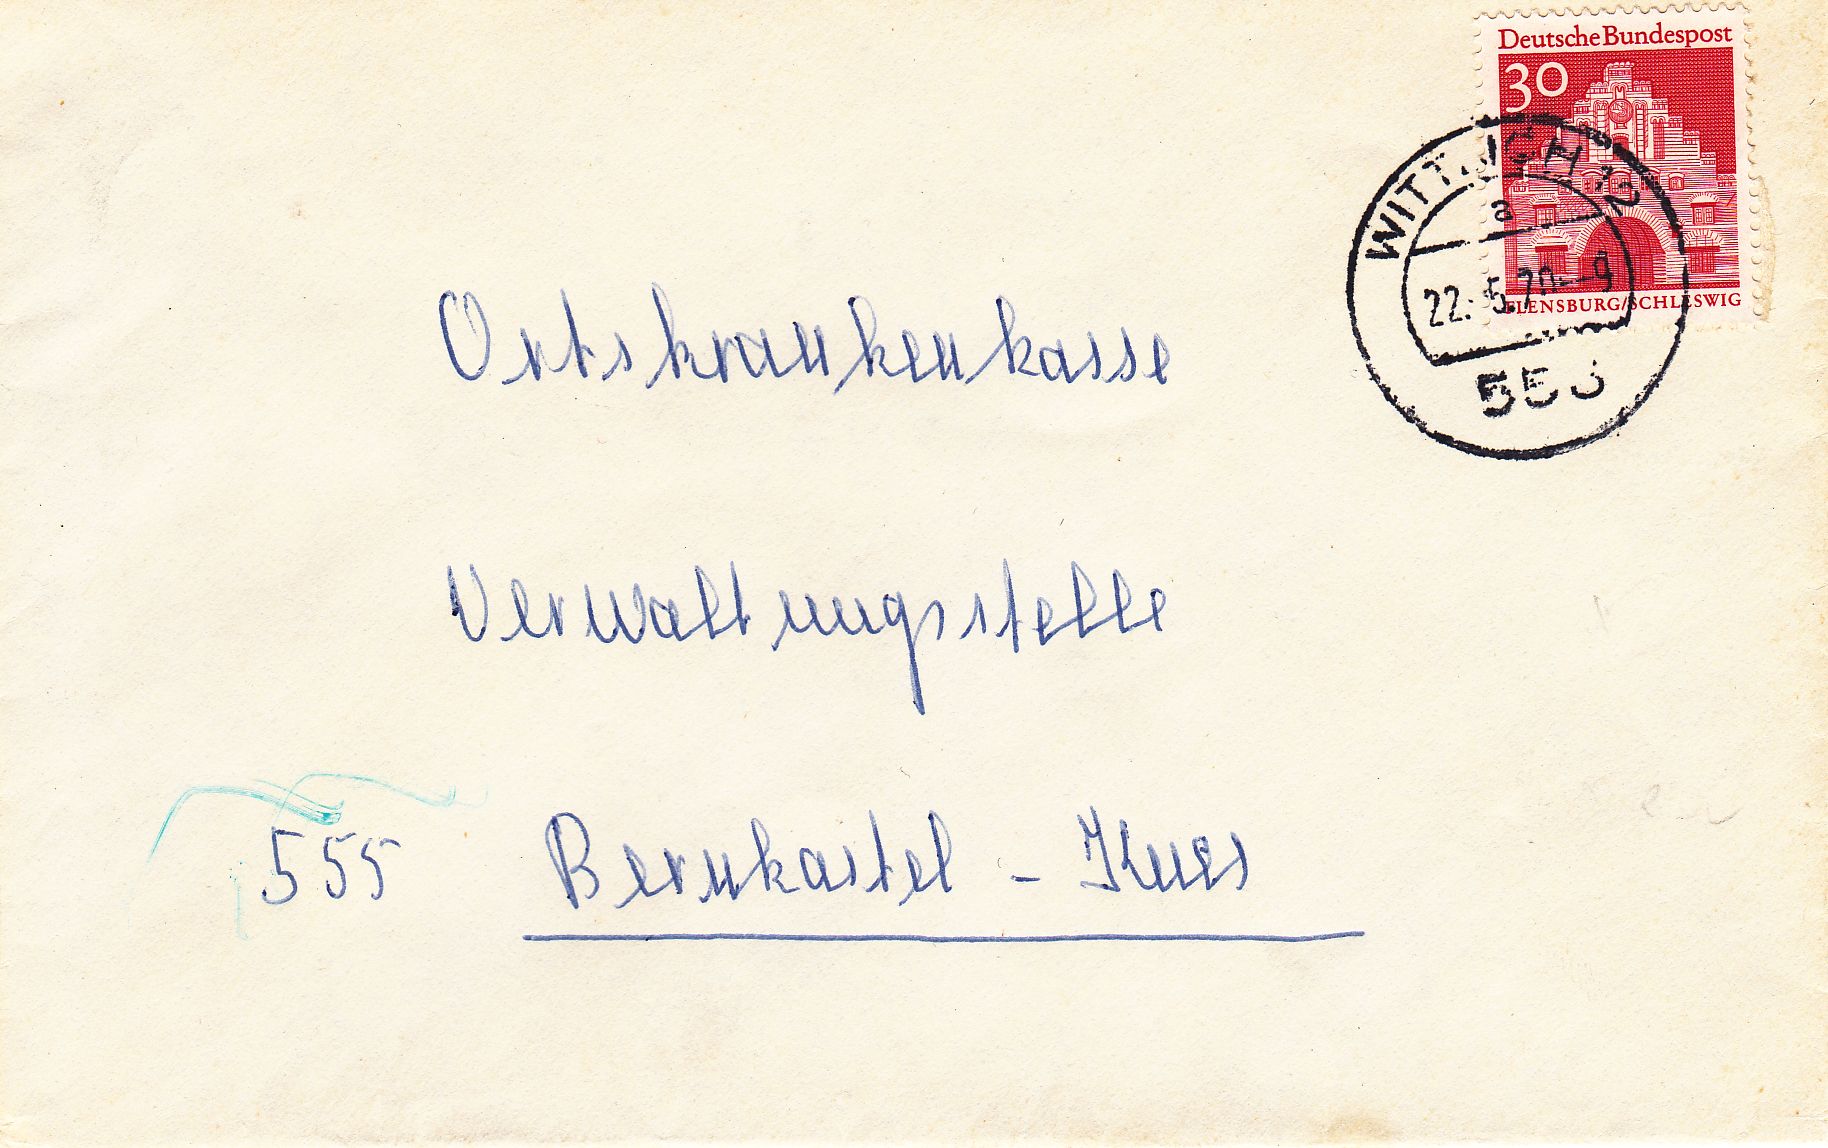 Deutsche Bundespost
30
FLENSBURG/SCHLESWIG
WITTLICH 12
a
22.-5.70--9
553
Ortskrankenkasse
Verwaltungsstelle
555 Bernkastel - Kues